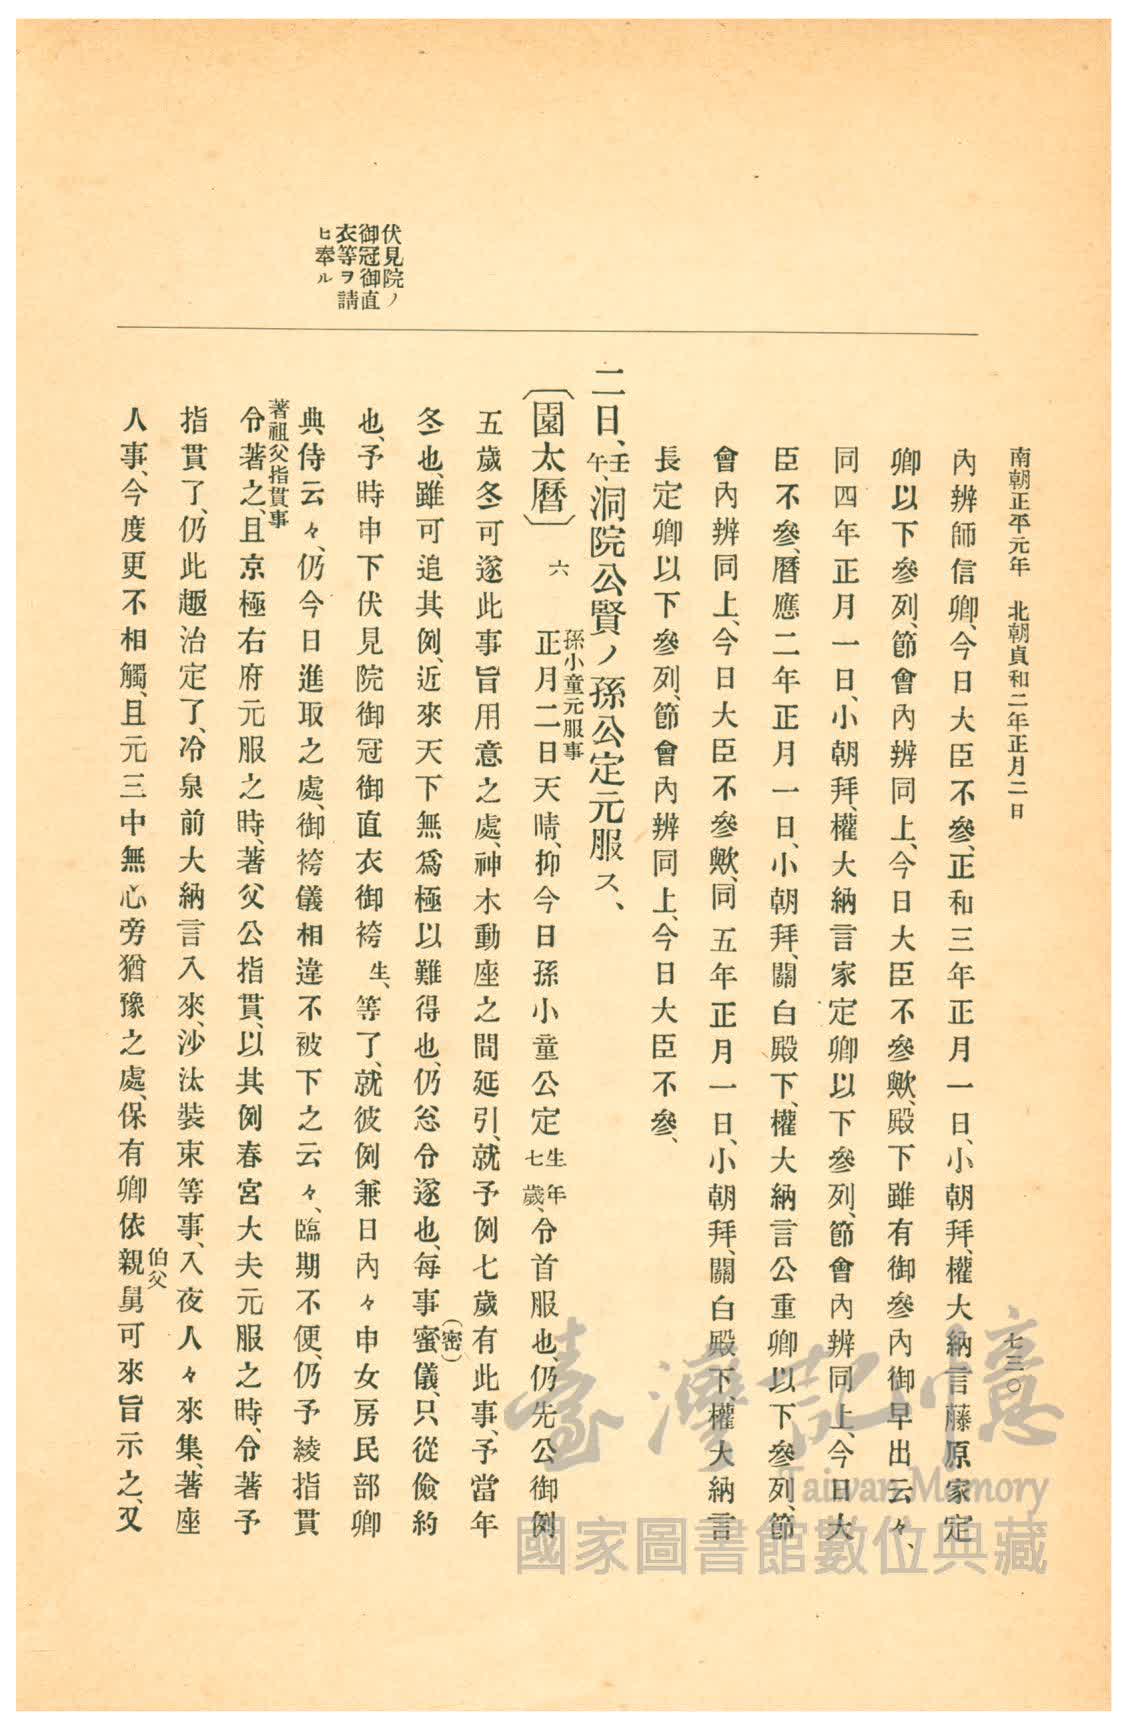 南朝正平元年　北朝貞和二年正月二日
七三〇
內辨師信卿、今日大臣不參、正和三年正月一日、小朝拜、權大納言藤原家定
卿以下參列、節會內辨同上、今日大臣不參歟、殿下雖有御參內御早出云々、
同四年正月一日、小朝拜、權大納言家定卿以下參列、節會內辨同上、今日大
臣不參、曆應二年正月一日、小朝拜、關白殿下、權大納言公重卿以下參列、節
會內辨同上、今日大臣不參歟、同五年正月一日、小朝拜、關白殿下、權大納言
長定卿以下參列、節會內辨同上、今日大臣不參、
二日、壬午、洞院公賢ノ孫公定元服ス、
孫小童元服事
〔園太曆〕六　正月二日天晴、抑今日孫小童公定生年七歲、令首服也、仍先公御例
五歲冬可遂此事旨用意之處、神木動座之間延引、就予例七歲有此事、予當年
(密)
冬也、雖可追其例、近來天下無爲極以難得也、仍忩令遂也、每事蜜儀、只從儉約
也、予時申下伏見院御冠御直衣御袴生、等了、就彼例兼日內々申女房民部卿
伏見院ノ
御冠御直
衣等ヲ請
ヒ奉ル
典侍云々、仍今日進取之處、御袴儀相違不被下之云々、臨期不便、仍予綾指貫
著祖父指貫事
令著之、且京極右府元服之時、著父公指貫、以其例春宮大夫元服之時、令著予
指貫了、仍此趣治定了、冷泉前大納言入來、沙汰裝束等事、入夜人々來集、著座
伯父
人事、今度更不相觸、且元三中無心旁猶豫之處、保有卿依親舅可來旨示之、又
臺灣記憶
Taiwan Memory
國家圖書館數位典藏